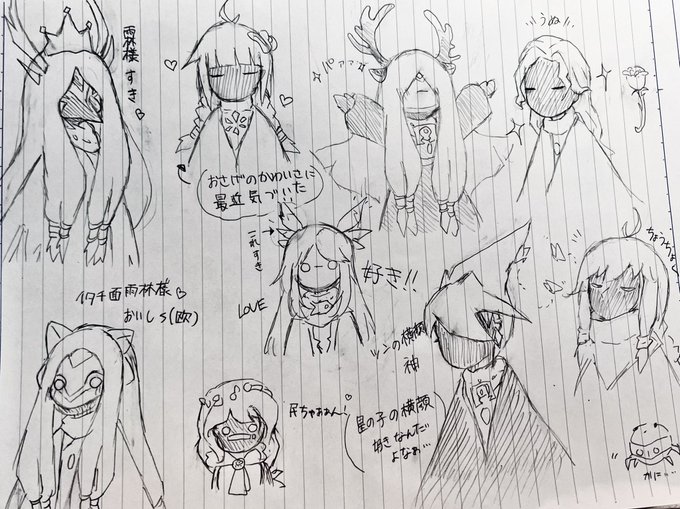 雨林様
すき
おさげのかわいさに
最近気づいた
パァァ
うぬ!!
これすき
イタチ面雨林様
おいしs(殴)
LOVE
好き!!
ツンの横顔
神
ちょうちょ
民ちゃあぁん
星の子の横顔
好きなんだ
よなぁ…
かに…